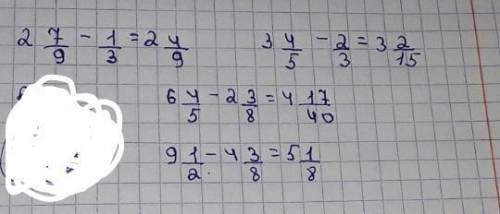 2 7/9 - 1/3 = 2 4/9   3 4/5 - 2/3 = 3 2/15
6 4/5 - 2 3/8 = 4 17/40
9 1/2 - 4 3/8 = 5 1/8